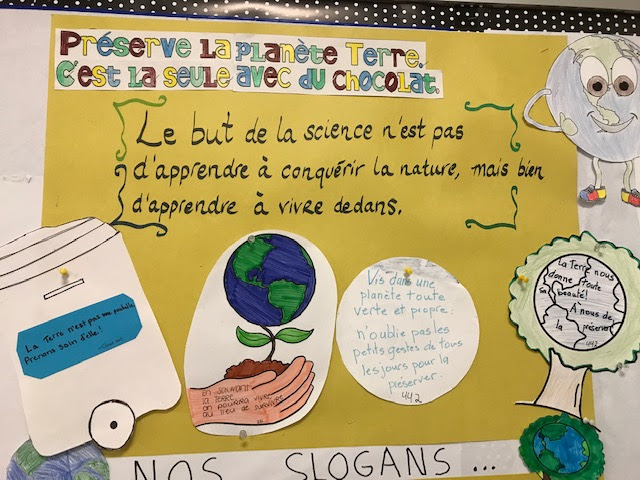 Préserve la planète Terre.
C'est la seule avec du chocolat.
Le but de la science n'est pas
d'apprendre à conquérir la nature, mais bien
d'apprendre à vivre dedans.
La Terre n'est pas une poubelle
Prenons soin d'elle!
en sauvant
la Terre
on pourra vivre
au lieu de survivre
Vis dans une
planète toute
verte et propre:
n'oublie pas les
petits gestes de tous
les jours pour la
préserver.
442
La Terre nous
donne toute
sa beauté!
À nous de
la préserver
442
NOS SLOGANS ...